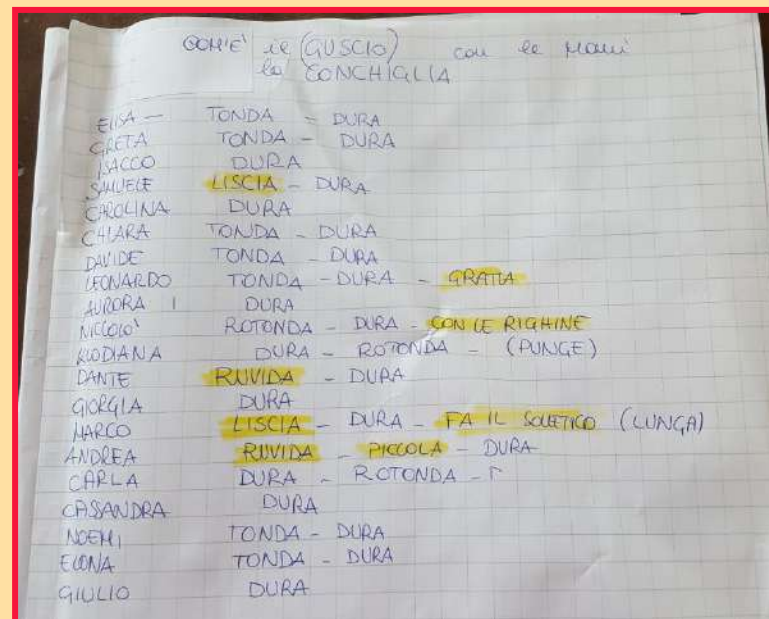 COM'E' il (GUSCIO) con le mani
la CONCHIGLIA
ELISA - TONDA - DURA
GRETA TONDA - DURA
ISACCO DURA
SAMUELE LISCIA - DURA
CAROLINA DURA
CHIARA TONDA - DURA
DAVIDE TONDA - DURA
LEONARDO TONDA - DURA - GRATTA
AURORA DURA
NICCOLO' ROTONDA - DURA - CON LE RIGHINE
KLODIANA DURA - ROTONDA - (PUNGE)
DANTE RUVIDA - DURA
GIORGIA DURA
MARCO LISCIA - DURA - FA IL SOLETICO (LUNGA)
ANDREA RUVIDA - PICCOLA - DURA
CARLA DURA - ROTONDA -
CASSANDRA DURA
NOEMI TONDA - DURA
ELONA TONDA - DURA
GIULIO DURA